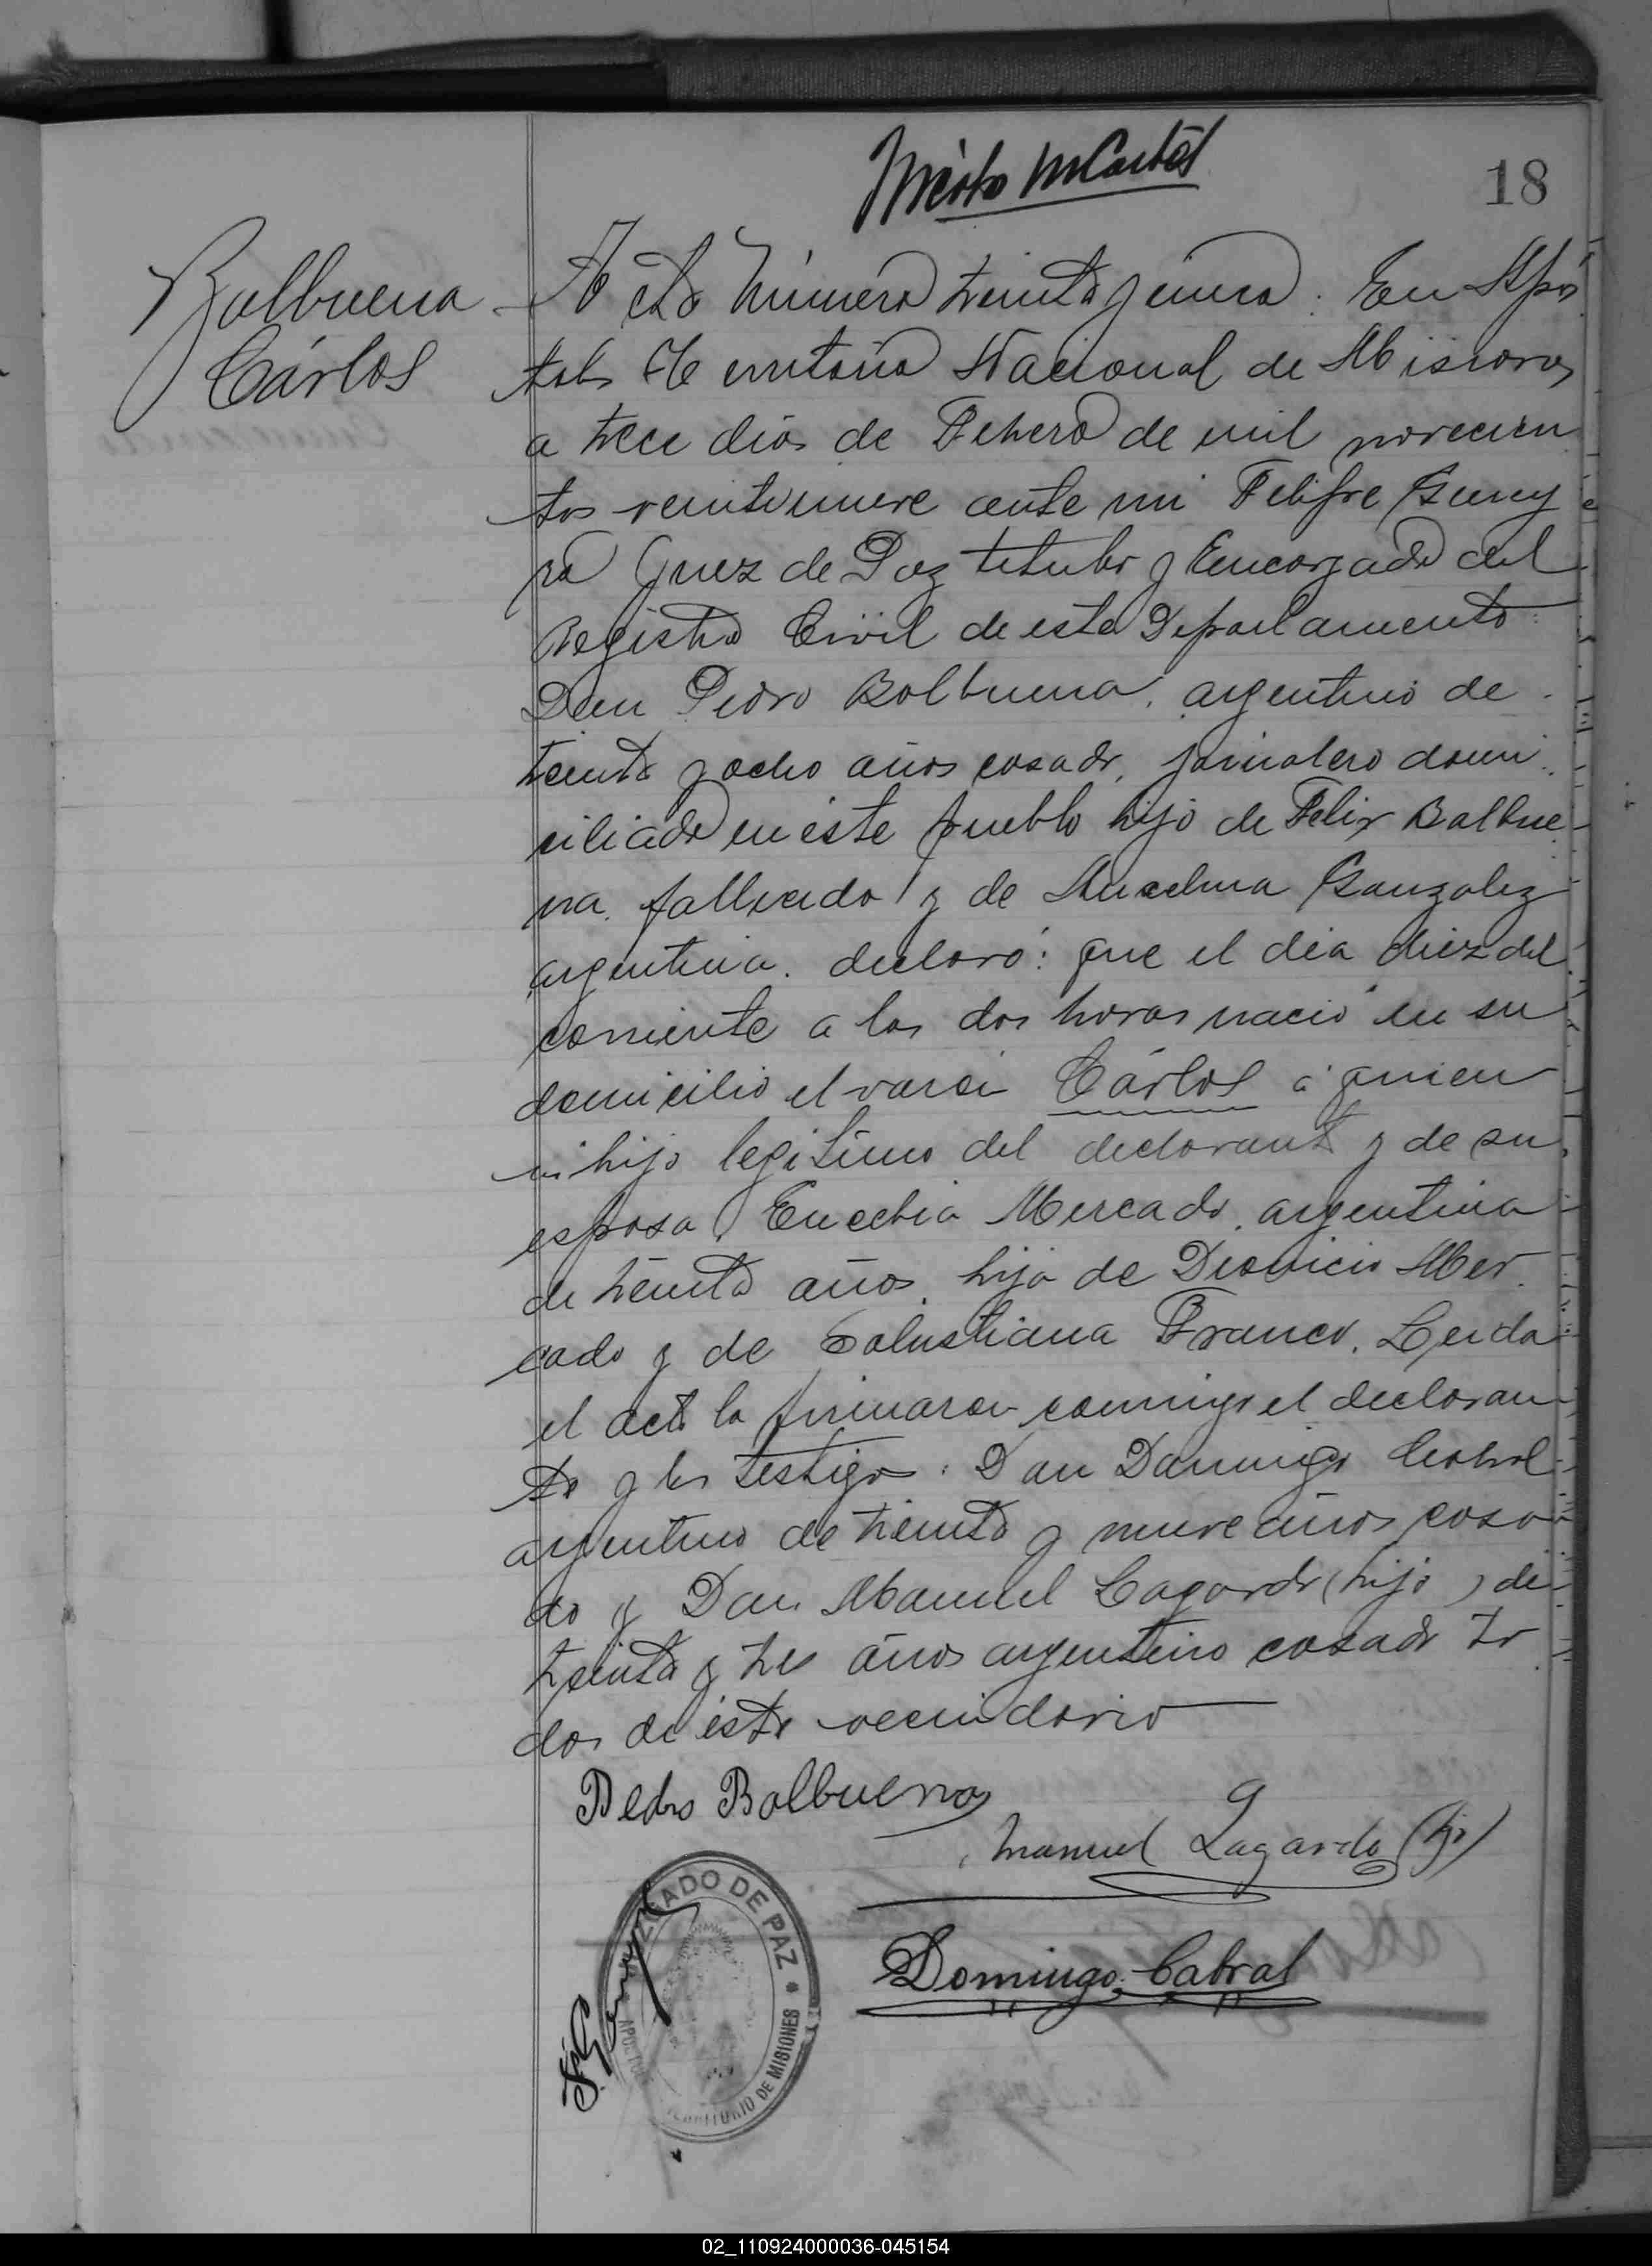 18
Balbuena
Cárlos
Acta Número treinta y cinco. En Após
toles Territorio Nacional de Misiones
a trece dias de Febrero de mil novecien
tos veintinueve ante mi Felipe
Juez de Paz titular y Encargado del
Registro Civil de este Departamento:
Don Pedro Balbuena, argentino de
treinta y ocho años casado, jornalero domi
ciliado en este pueblo hijo de Felix Balbue
na, fallecido y de Anselma Gonzalez
argentina. declaró: que el dia diez del
corriente a las dos horas nació en su
domicilio el varón Cárlos a quien
vi hijo legitimo del declarante y de su
esposa, Eucebia Mercado, argentina
de treinta años, hija de Dionicio Mer
cado y de Salustiana Franco. Leida
el acta la firmaron conmigo el declaran
te y los testigos: Don Domingo Cabral
argentino de treinta y nueve años casa
do y Don Manuel Lagardo (hijo) de
treinta y tres años argentino casado to
dos de este vecindario
Pedro Balbuena
Manuel Lagardo (hjo)
Domingo Cabral
JUZGADO DE PAZ * APOSTOLES TERRITORIO DE MISIONES
02_110924000036-045154